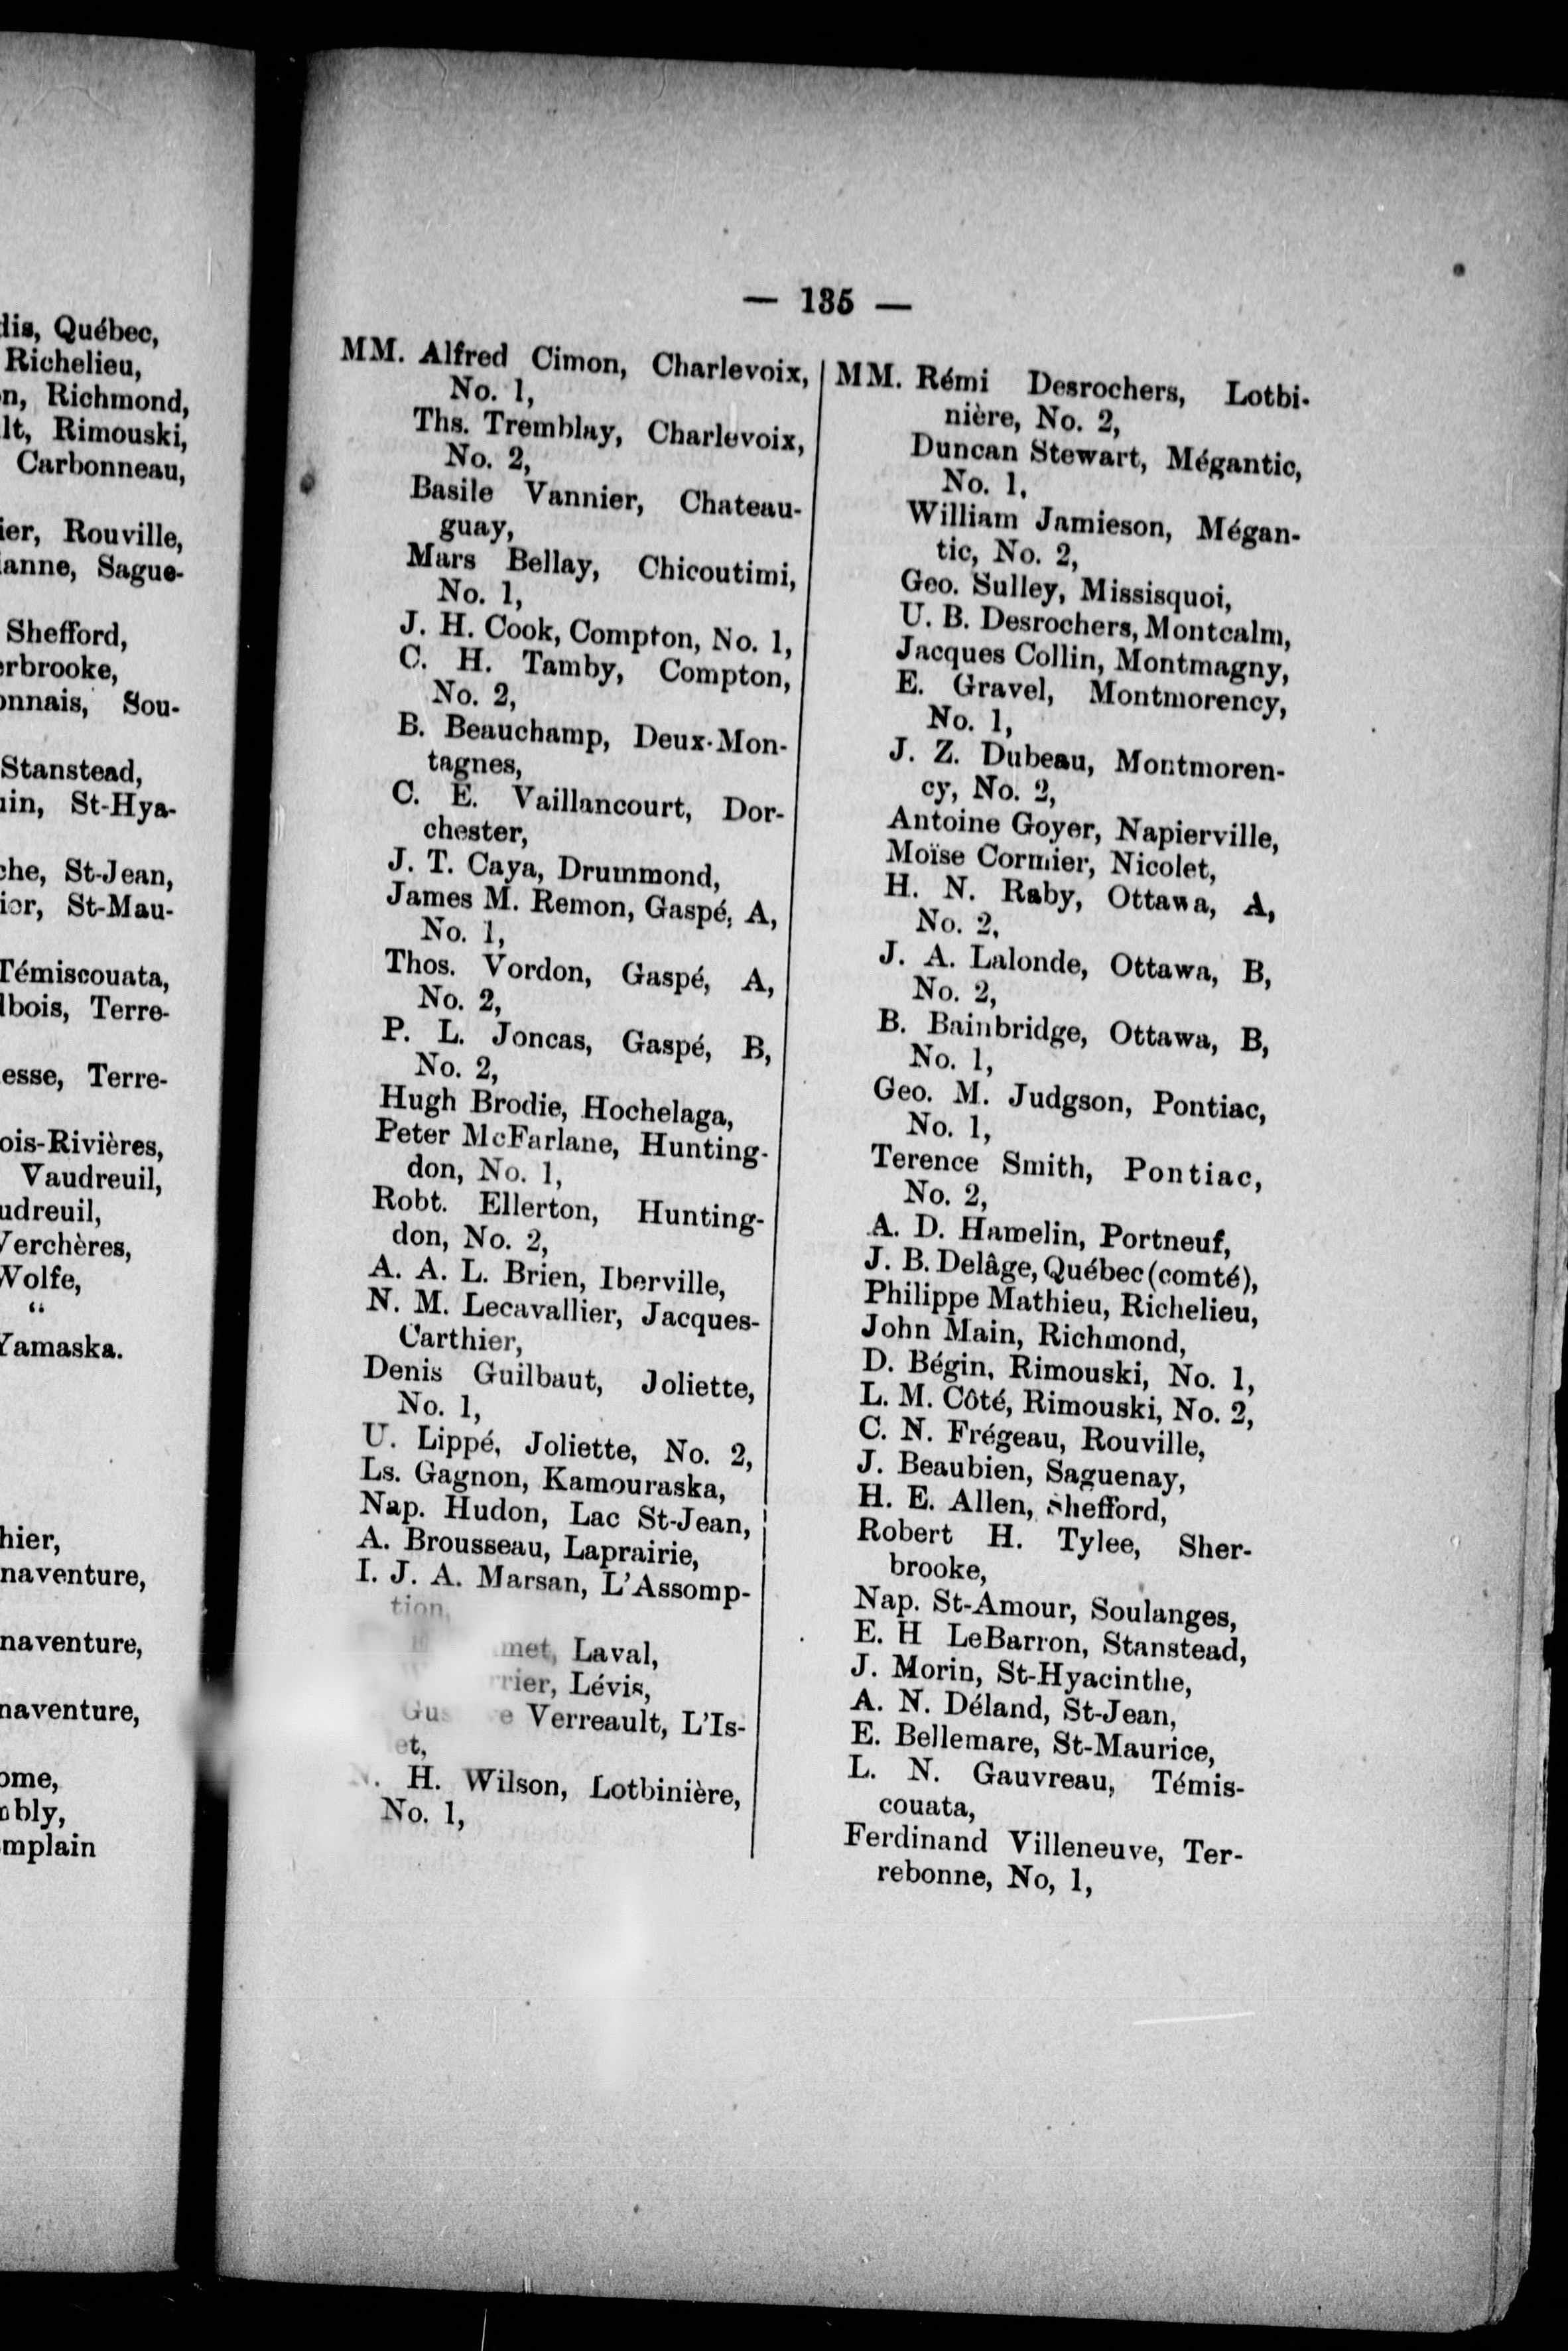 dis, Québec,
Richelieu,
n, Richmond,
lt, Rimouski,
Carbonneau,
ier, Rouville,
anne, Sague-
Shefford,
erbrooke,
onnais, Sou-
Stanstead,
in, St-Hya-
che, St-Jean,
ier, St-Mau-
Témiscouata,
lbois, Terre-
esse, Terre-
ois-Rivières,
Vaudreuil,
udreuil,
Verchères,
Wolfe,
“
Yamaska.
hier,
naventure,
naventure,
naventure,
ome,
bly,
mplain
— 135 —
MM. Alfred Cimon, Charlevoix,
No. 1,
Ths. Tremblay, Charlevoix,
No. 2,
Basile Vannier, Chateau-
guay,
Mars Bellay, Chicoutimi,
No. 1,
J. H. Cook, Compton, No. 1,
C. H. Tamby, Compton,
No. 2,
B. Beauchamp, Deux-Mon-
tagnes,
C. E. Vaillancourt, Dor-
chester,
J. T. Caya, Drummond,
James M. Remon, Gaspé, A,
No. 1,
Thos. Vordon, Gaspé, A,
No. 2,
P. L. Joncas, Gaspé, B,
No. 2,
Hugh Brodie, Hochelaga,
Peter McFarlane, Hunting-
don, No. 1,
Robt. Ellerton, Hunting-
don, No. 2,
A. A. L. Brien, Iberville,
N. M. Lecavallier, Jacques-
Carthier,
Denis Guilbaut, Joliette,
No. 1,
U. Lippé, Joliette, No. 2,
Ls. Gagnon, Kamouraska,
Nap. Hudon, Lac St-Jean,
A. Brousseau, Laprairie,
I. J. A. Marsan, L'Assomp-
tion,
met, Laval,
rrier, Lévis,
Verreault, L'Is-
et,
H. Wilson, Lotbinière,
No. 1,
MM. Rémi Desrochers, Lotbi-
nière, No. 2,
Duncan Stewart, Mégantic,
No. 1,
William Jamieson, Mégan-
tic, No. 2,
Geo. Sulley, Missisquoi,
U. B. Desrochers, Montcalm,
Jacques Collin, Montmagny,
E. Gravel, Montmorency,
No. 1,
J. Z. Dubeau, Montmoren-
cy, No. 2,
Antoine Goyer, Napierville,
Moïse Cormier, Nicolet,
H. N. Raby, Ottawa, A,
No. 2,
J. A. Lalonde, Ottawa, B,
No. 2,
B. Bainbridge, Ottawa, B,
No. 1,
Geo. M. Judgson, Pontiac,
No. 1,
Terence Smith, Pontiac,
No. 2,
A. D. Hamelin, Portneuf,
J. B. Delâge, Québec (comté),
Philippe Mathieu, Richelieu,
John Main, Richmond,
D. Bégin, Rimouski, No. 1,
L. M. Côté, Rimouski, No. 2,
C. N. Frégeau, Rouville,
J. Beaubien, Saguenay,
H. E. Allen, Shefford,
Robert H. Tylee, Sher-
brooke,
Nap. St-Amour, Soulanges,
E. H LeBarron, Stanstead,
J. Morin, St-Hyacinthe,
A. N. Déland, St-Jean,
E. Bellemare, St-Maurice,
L. N. Gauvreau, Témis-
couata,
Ferdinand Villeneuve, Ter-
rebonne, No, 1,